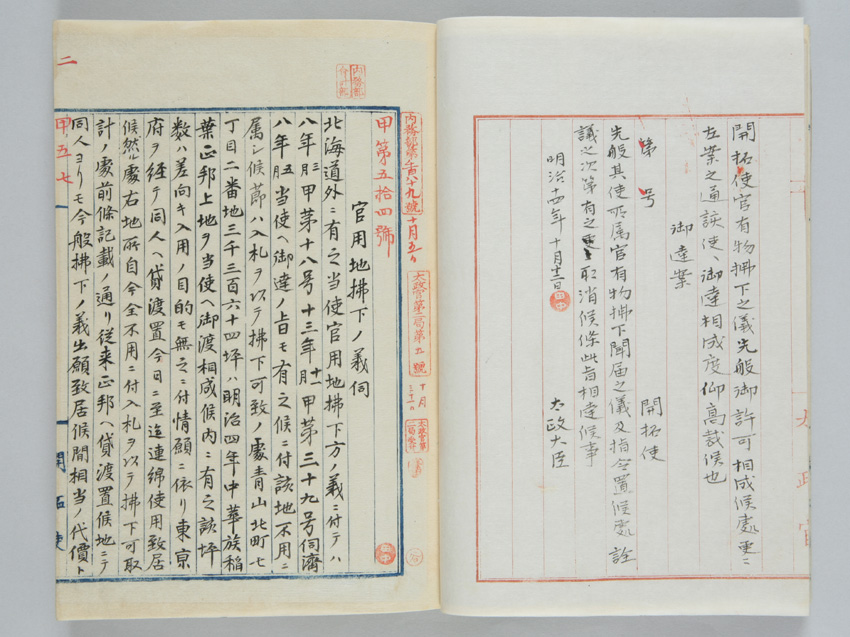 開拓使官有物拂下之儀先般御許可相成候處更ニ
左案之通該使ヘ御達相成度仰高裁候也
御達案
第 号
開拓使
先般其使所属官有物拂下聞届之儀及指令置候處詮
議之次第有之更ニ取消候條此旨相達候事
明治十四年十月十二日
太政大臣
太政官
内務部第百八十九號
十月五日
太政官第一局第五號
十月三十一日
甲第五拾四號
官用地拂下ノ義伺
北海道外ニ有之当使官用地拂下方ノ義ニ付テハ
八年三月甲第十八号十三年十一月甲第三十九号伺濟
八年五月当使ヘ御達ノ上日モ有之候ニ付該地不用ニ
属シ候節ハ入札ヲ以テ拂下可致ノ處青山北町七
丁目二番地三千三百六十四坪ハ明治四年中華族稲
葉正邦上地ヲ当使ヘ御渡相成候内ニ有之該坪
数ハ差向キ入用ノ目的モ無之ニ付情願ニ依リ東京
府ヲ経テ同人ヘ貸渡置今日ニ至迄連綿使用致居
候然ル處右地所自今全不用ニ付入札ヲ以テ拂下可取
計ノ處前條記載ノ通リ従来正邦ヘ貸渡置候地ニテ
同人ヨリモ今般拂下ノ義出願致居候間相当ノ代價ト
二
甲五七
開拓使